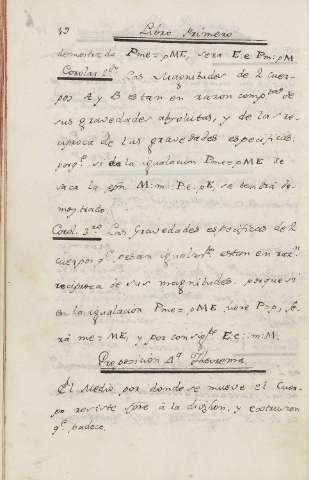 12 Libro Primero
demostrado Pme=pME, sera E:e Pm:pM
Corolar. 2º Las Magnitudes de 2 cuer-
pos A y B estan en razon comp.tas de
sus gravedades absolutas, y de las re-
ciproca de las gravedades especificas,
porq.e si de la igualacion Pme=pME se
saca la epn M:m::Pe.pE, se tendrá de-
mostrado.
Corol. 3.ro Las Gravedades especificas de 2
cuerpos q.e pesan igualm.te estan en raz.n
reciproca de sus magnitudes. porque si
en la igualacion Pme=pME, pore P=p, se-
rá me=ME, y por consig.te E:e::m:M.
Proposicion 4.a Theorema
El Medio por donde se mueve el Cuer-
po resiste spre à la division, y
q.e padece.